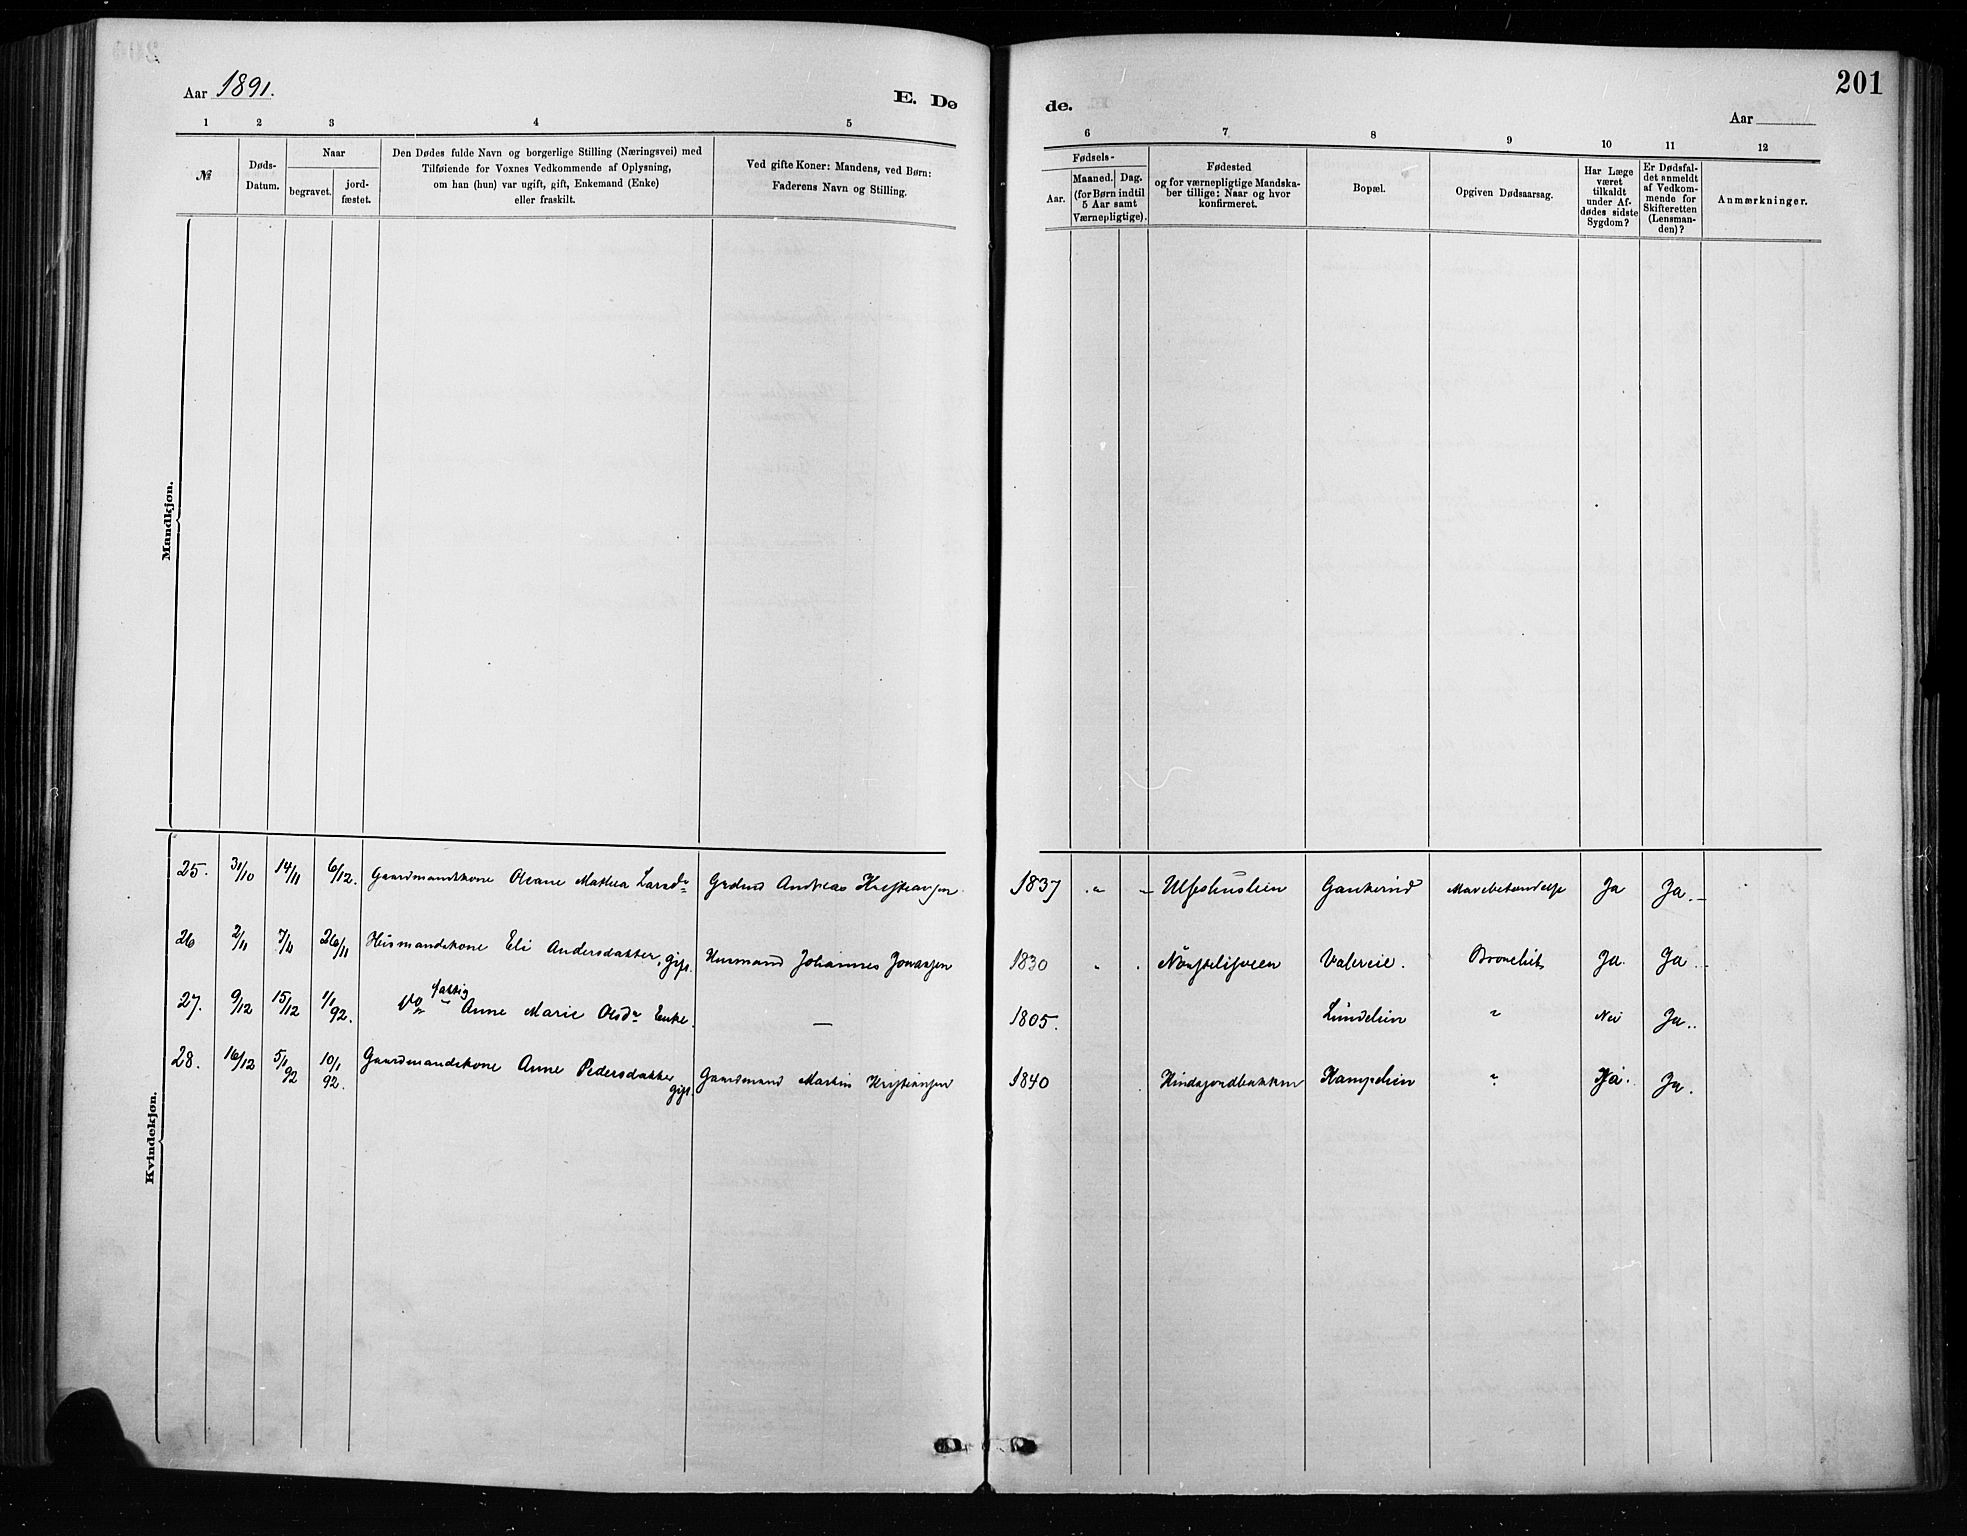 Aar 1891.
E. Dø
de.
201
Aar
1 2 3 4 5
6 7 8 9 10 11 12
№
Døds-
Datum.
Naar
begravet.
jord-
fæstet.
Den Dødes fulde Navn og borgerlige Stilling (Næringsvei) med
Tilføiende for Voxnes Vedkommende af Oplysning,
om han (hun) var ugift, gift, Enkemand (Enke)
eller fraskilt.
Ved gifte Koner: Mandens, ved Børn:
Faderens Navn og Stilling.
Fødsels-
Aar.
Maaned.
Dag.
(for Børn indtil
5 Aar samt
Værnepligtige).
Fødested
og for værnepligtige Mandska-
ber tillige: Naar og hvor
konfirmeret.
Bopæl.
Opgiven Dødsaarsag.
Har Læge
været
tilkaldt
under Af-
dødes sidste
Sygdom?
Er Dødsfal-
det anmeldt
af Vedkom-
mende for
Skifteretten
(Lensman-
den)?
Anmærkninger.
Mandkjøn.
Kvindekjøn.
25. 31/10 14/11 6/12. Gaardmandskone Oleane Mathea Larsdr Andreas 1837 " Ja Ja.
26 2/11 7/11 26/11 Husmandskone Eli Andersdatter, gift. Husmand Johannes 1830 " Valereie. Ja. Ja.
27. 9/12 15/12 1/1 92. fattig Anne Marie Olsdr Enke. — 1805. Lundelien " Nei Ja.
28. 16/12 5/1 92 10/1 92. Gaardmandskone Anne Pedersdatter gift. Gaardmand Martin Kristiansen 1840 Kampelien " Ja. Ja.